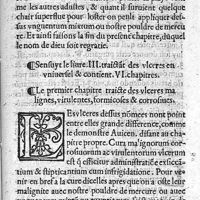 me les autres adustes, & quant il suruient quelque
chair superflue pour loster on peult appliquer des-
sus vnguentum mixtum ou nostre pouldre de mercu-
re. Et ainsi faisons la fin du present chapitre, duquel
le nom de dieu soit regracie.
¶ Sensuyt le liure. III. traictāt des vlceres en
vniuersel & contient. VI. chapitres.
¶ Le premier chapitre traicte des vlceres ma
lignes, virulentes, formicoses & corrosiues.
Les vlceres dessus nōmees nont point
entre elles grande difference, comme
le demonstre Auicen. disant au cha-
pitre propre. Cura malignorum et
corrosiuorum ac virulentorum vlcerum
est q̄ efficitur administratiōe exicca-
tiua & stipticatiua cum infrigidatione. Pour ve-
nir en bref a la cure dicelles apres que on a oste leur
malignite auec nostre pouldre de mercure ou auec